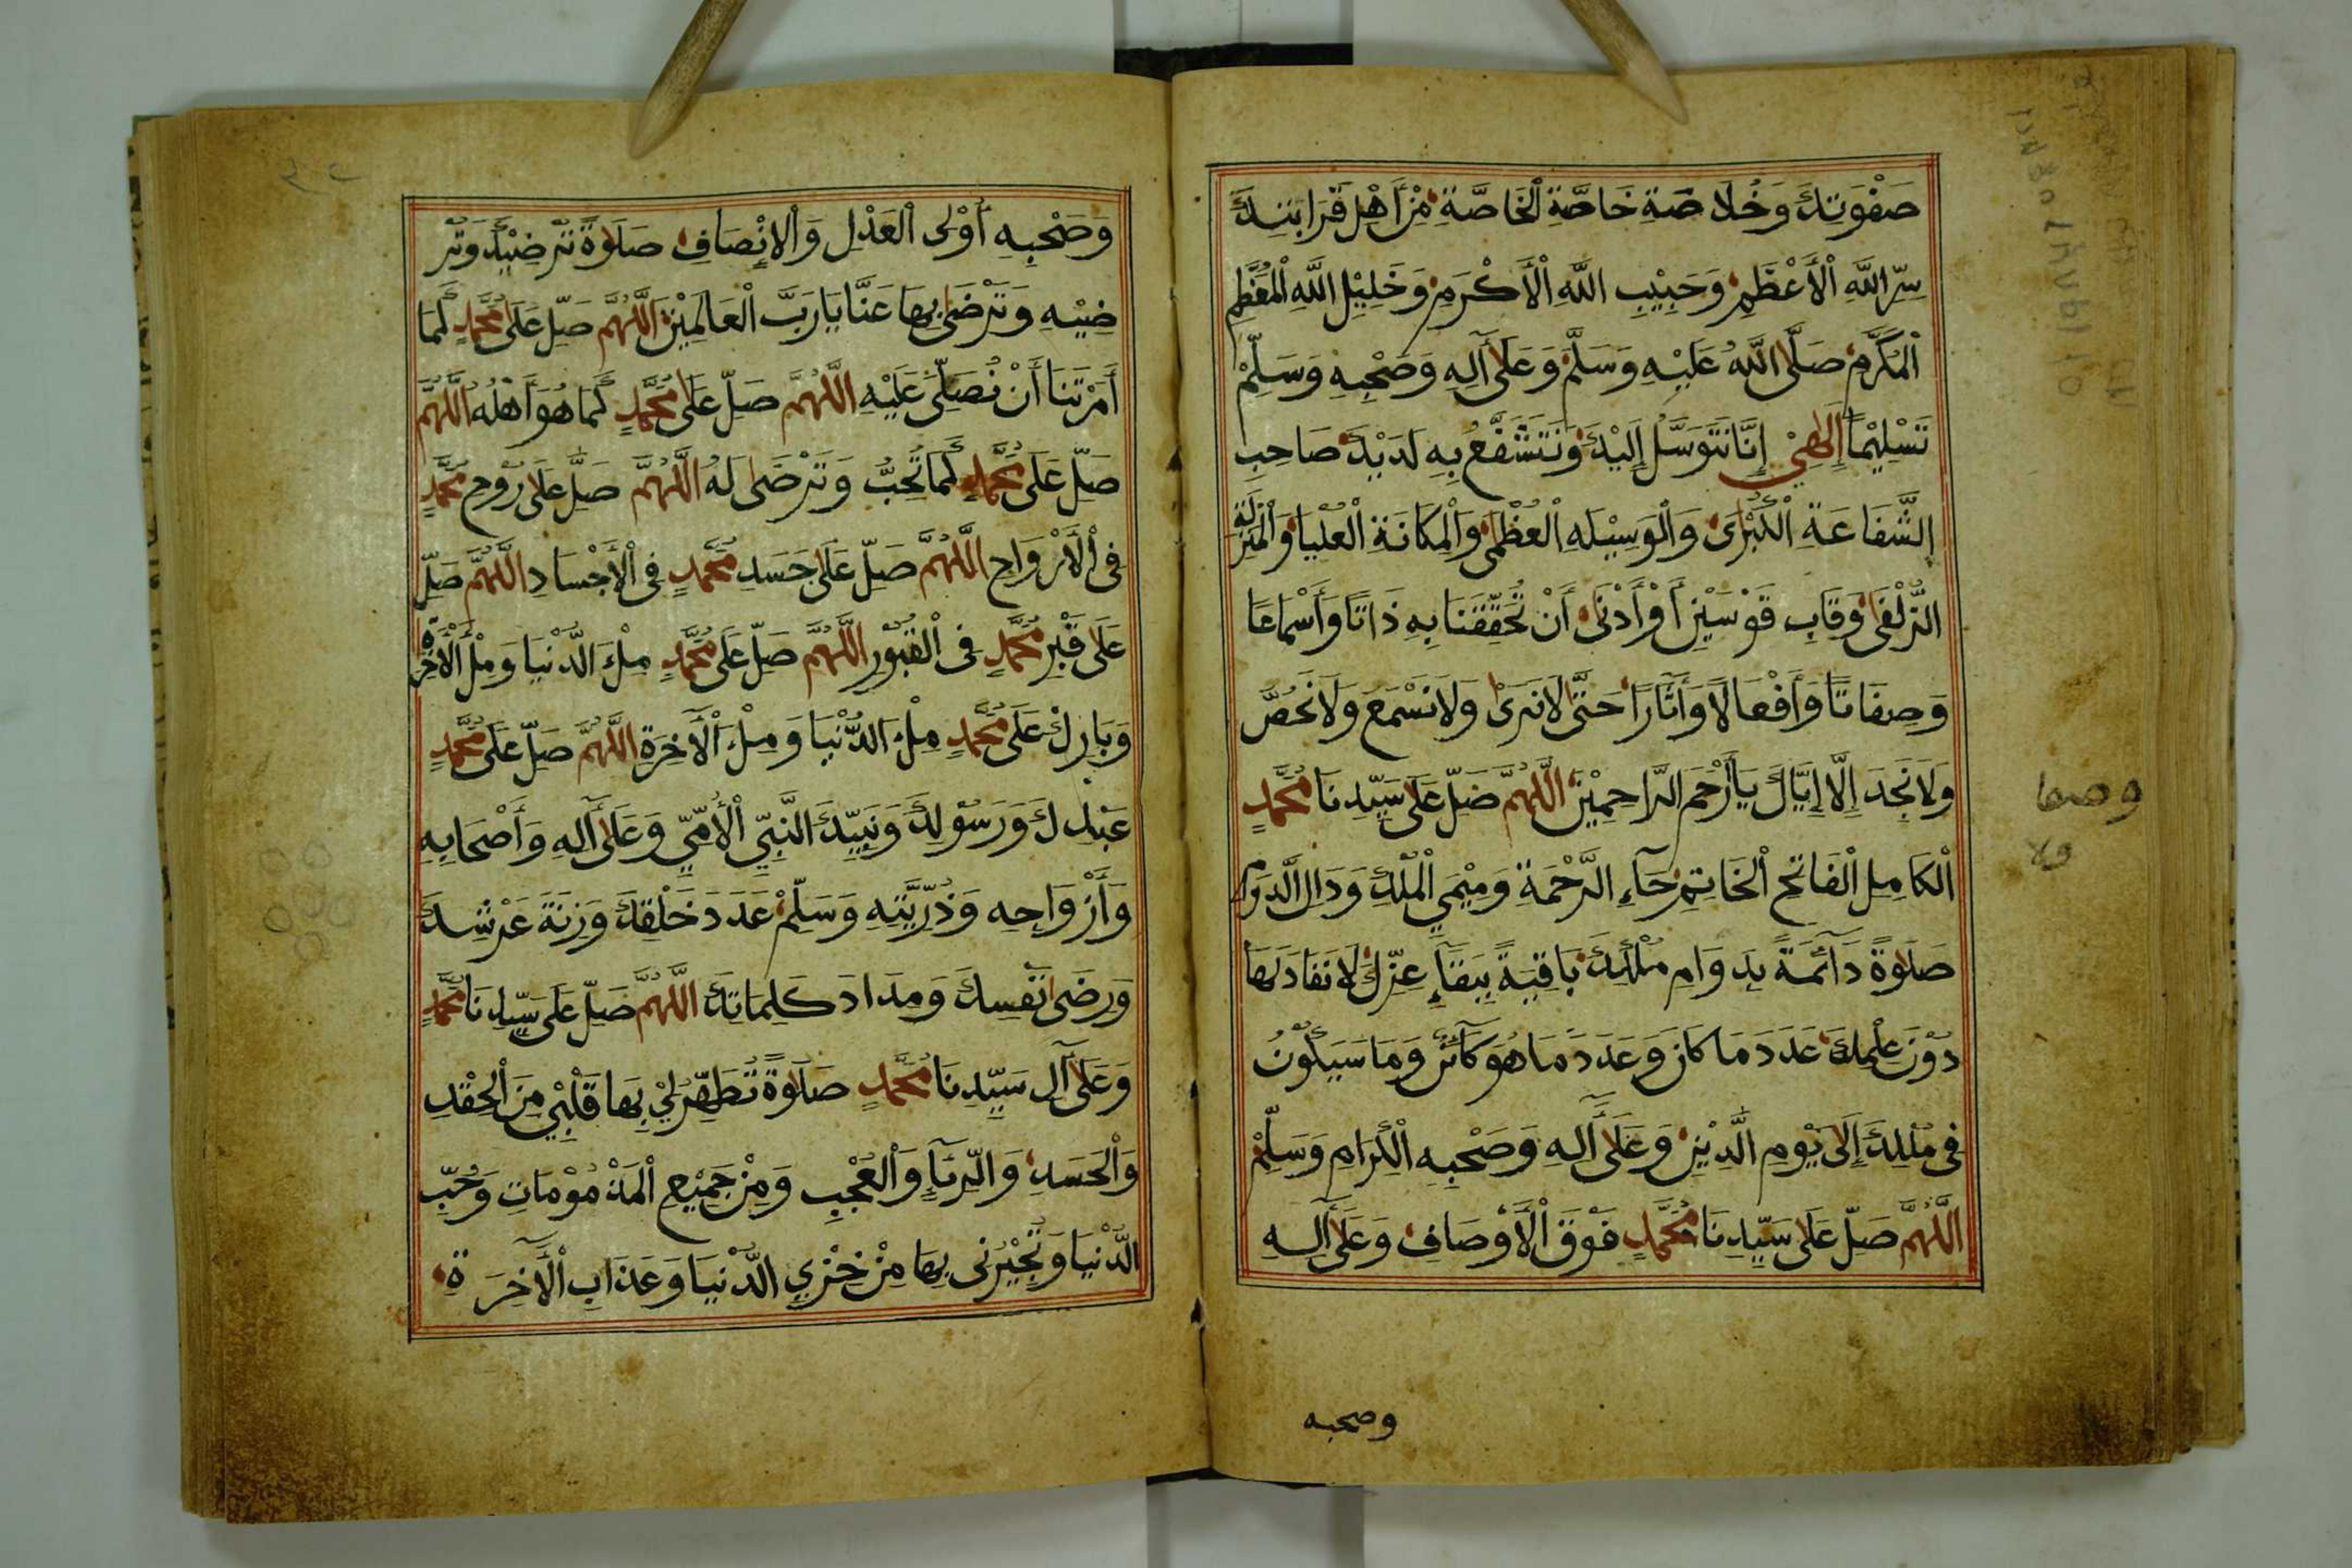 صَفْوَتِكَ وَخُلَاصَةِ خَاصَّةِ الْخَاصَّةِ مِنْ أَهْلِ قَرَابَتِكَ
سِرِّ اللَّهِ الْأَعْظَمِ وَحَبِيْبِ اللَّهِ الْأَكْرَمِ وَخَلِيْلِ اللَّهِ الْمُعَظَّمِ
الْمُكَرَّمِ صَلَّى اللَّهُ عَلَيْهِ وَسَلَّمَ وَعَلَى آلِهِ وَصَحْبِهِ وَسَلِّمْ
تَسْلِيْمًا إِلٰهِيْ إِنَّا نَتَوَسَّلُ إِلَيْكَ وَنَتَشَفَّعُ بِهِ لَدَيْكَ صَاحِبِ
الشَّفَاعَةِ الْكُبْرَى وَالْوَسِيْلَةِ الْعُظْمَى وَالْمَكَانَةِ الْعُلْيَا وَالْمَنْزِلَةِ
الزُّلْفَى وَقَابِ قَوْسَيْنِ أَوْ أَدْنَى أَنْ تُحَقِّقَنَا بِهِ ذَاتًا وَأَسْمَاعًا
وَصِفَاتًا وَأَفْعَالًا وَآثَارًا حَتَّى لَا نَرَى وَلَا نَسْمَعَ وَلَا نَحُصَّ
وَلَا نَجِدَ إِلَّا إِيَّاكَ يَا أَرْحَمَ الرَّاحِمِيْنَ اللَّهُمَّ صَلِّ عَلَى سَيِّدِنَا مُحَمَّدٍ
الْكَامِلِ الْفَاتِحِ الْخَاتِمِ حَاءِ الرَّحْمَةِ وَمِيْمَيِ الْمُلْكِ وَدَالِ الدَّوَامِ
صَلَاةً دَائِمَةً بِدَوَامِ مُلْكِكَ بَاقِيَةً بِبَقَاءِ عِزِّكَ لَا نَفَادَ لَهَا
دُوْنَ عِلْمِكَ عَدَدَ مَا كَانَ وَعَدَدَ مَا هُوَ كَائِنٌ وَمَا سَيَكُوْنُ
فِى مُلْكِكَ إِلَى يَوْمِ الدِّيْنِ وَعَلَى آلِهِ وَصَحْبِهِ الْكِرَامِ وَسَلِّمْ
اللَّهُمَّ صَلِّ عَلَى سَيِّدِنَا مُحَمَّدٍ فَوْقَ الْأَوْصَافِ وَعَلَى آلِهِ
وصحبه
وَصَحْبِهِ أُوْلِى الْعَدْلِ وَالْإِنْصَافِ صَلَوةً تُرْضِيْكَ وَتُرْ
ضِيْهِ وَتَرْضَى بِهَا عَنَّا يَا رَبَّ الْعَالَمِيْنَ اللَّهُمَّ صَلِّ عَلَى مُحَمَّدٍ كَمَا
أَمَرْتَنَا أَنْ نُصَلِّىَ عَلَيْهِ اللَّهُمَّ صَلِّ عَلَى مُحَمَّدٍ كَمَا هُوَ أَهْلُهُ اللَّهُمَّ
صَلِّ عَلَى مُحَمَّدٍ كَمَا تُحِبُّ وَتَرْضَى لَهُ اللَّهُمَّ صَلِّ عَلَى رُوْحِ مُحَمَّدٍ
فِى الْأَرْوَاحِ اللَّهُمَّ صَلِّ عَلَى جَسَدِ مُحَمَّدٍ فِى الْأَجْسَادِ اللَّهُمَّ صَلِّ
عَلَى قَبْرِ مُحَمَّدٍ فِى الْقُبُوْرِ اللَّهُمَّ صَلِّ عَلَى مُحَمَّدٍ مِلْءَ الدُّنْيَا وَمِلْءَ الْآخِرَةِ
وَبَارِكْ عَلَى مُحَمَّدٍ مِلْءَ الدُّنْيَا وَمِلْءَ الْآخِرَةِ اللَّهُمَّ صَلِّ عَلَى مُحَمَّدٍ
عَبْدِكَ وَرَسُوْلِكَ وَنَبِيِّكَ النَّبِيِّ الْأُمِّيِّ وَعَلَى آلِهِ وَأَصْحَابِهِ
وَأَزْوَاجِهِ وَذُرِّيَّتِهِ وَسَلِّمْ عَدَدَ خَلْقِكَ وَزِنَةَ عَرْشِكَ
وَرِضَى نَفْسِكَ وَمِدَادَ كَلِمَاتِكَ اللَّهُمَّ صَلِّ عَلَى سَيِّدِنَا مُحَمَّدٍ
وَعَلَى آلِ سَيِّدِنَا مُحَمَّدٍ صَلَاوةً تُطَهِّرُ لِيْ بِهَا قَلْبِيْ مِنَ الْحِقْدِ
وَالْحَسَدِ وَالرِّيَاءِ وَالْعُجْبِ وَمِنْ جَمِيْعِ الْمَذْمُوْمَاتِ وَحُبِّ
الدُّنْيَا وَتُجِيْرُنِى بِهَا مِنْ خِزْيِ الدُّنْيَا وَعَذَابِ الْآخِرَةِ